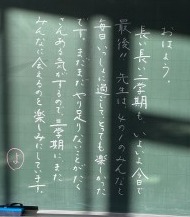 おはよう。
長い長い二学期も、いよいよ今日で
最後!! 先生は、4の1のみんなと
毎日いっしょに過ごして、とても楽しかった
です。まだまだやり足りないことがたく
さんある気がするので、三学期にまた
みんなに会えるのを楽しみにしています。